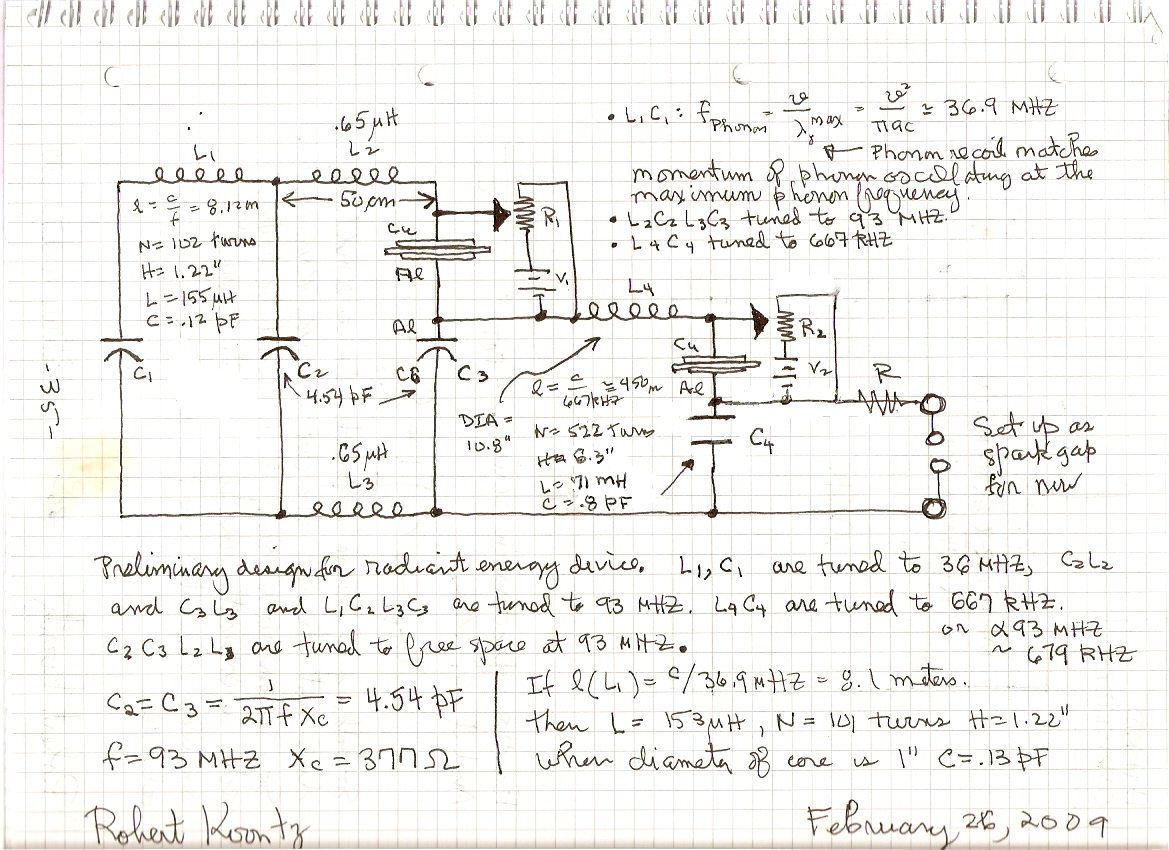 • L1C1: fphonon = v/λγmax = v²/παc ≅ 36.9 MHz
Phonon recoil matches
momentum of phonon oscillating at the
maximum phonon frequency.
• L2C2L3C3 tuned to 93 MHz.
• L4C4 tuned to 667 kHz
.65µH
L1
L2
50 cm
l = c/f = 8.12m
N= 102 turns
H= 1.22"
L = 155 µH
C = .12 pF
Cu
Al
R1
V1
L4
Al
C1
C2
4.54 pF
C3
Cu
Al
R2
V2
R
l = c/667kHz ≅ 450m
DIA =
10.8"
N= 522 Turns
H= 6.3"
L= 71 mH
C = .8 pF
C4
Set up as
spark gap
for now
.65µH
L3
-53-
Preliminary design for radiant energy device. L1, C1 are tuned to 36 MHz, C2L2
and C3L3 and L1C2L3C3 are tuned to 93 MHz. L4C4 are tuned to 667 kHz.
or α93 MHz
~ 679 kHz
C2 C3 L2 L3 are tuned to free space at 93 MHz.
C2= C3 = 1/2πf Xc = 4.54 pF
f= 93 MHz Xc = 377Ω
If l(L1) = c/36.9 MHz = 8.1 meters.
then L = 153µH, N= 101 turns H=1.22"
when diameter of core is 1" C=.13 pF
Robert Koontz
February, 26, 2009